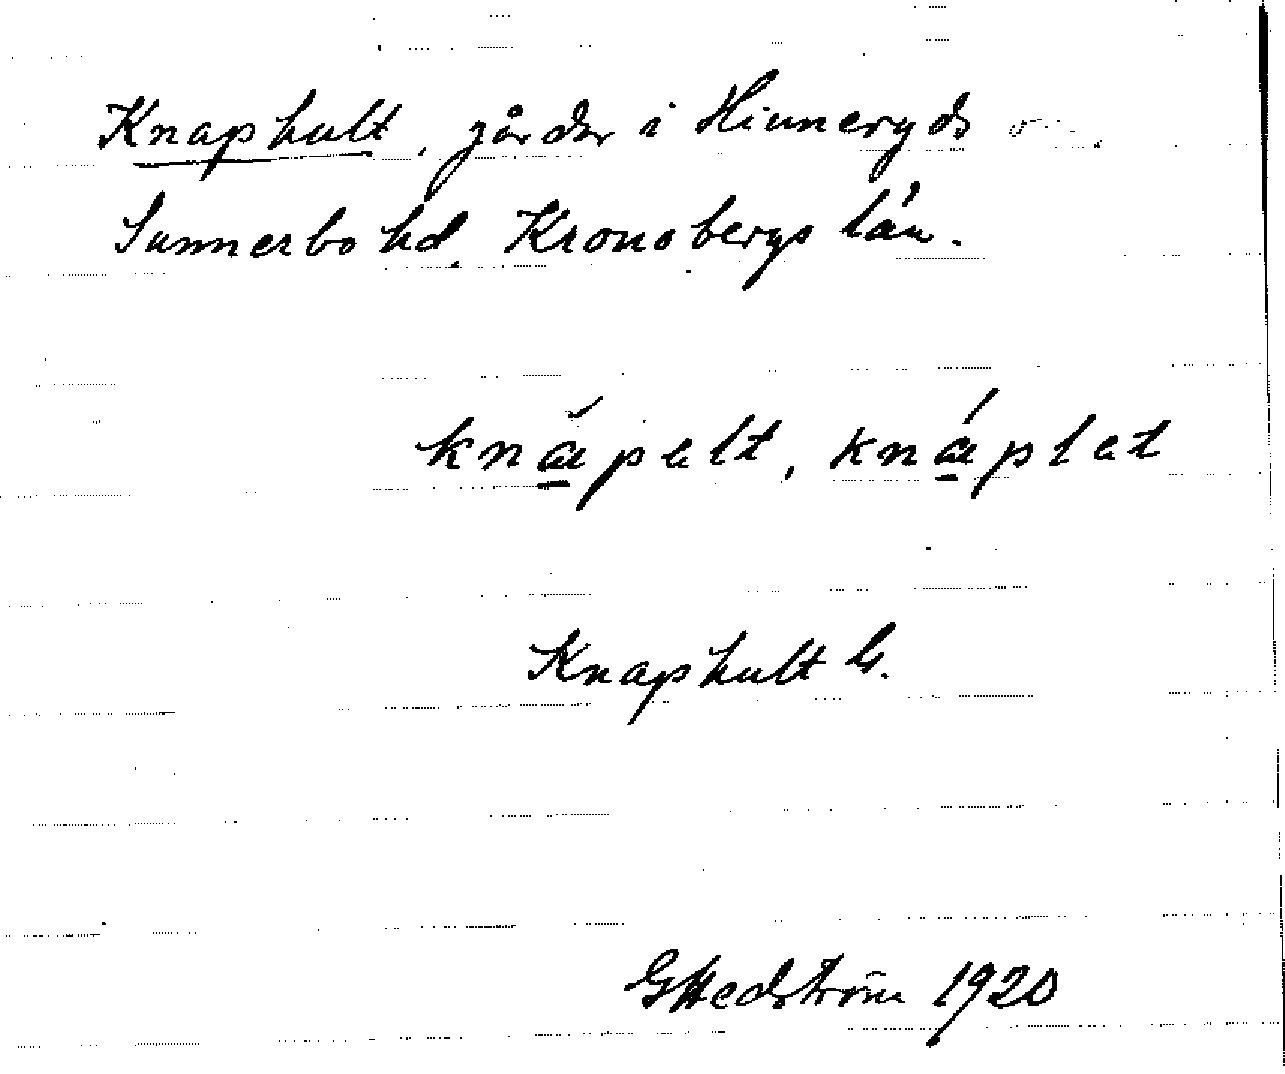 Knaphult, gårdar i Hinneryds
Sunnerbo hd, Kronobergs län.
knäpelt, knáplet
Knaphult G.
GHedström 1920